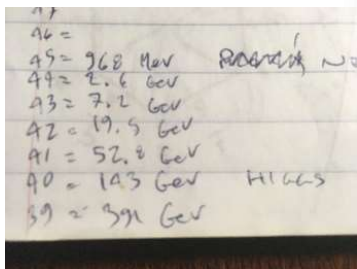 47
46 =
45 = 968 MeV
44 = 2.6 GeV
43 = 7.2 GeV
42 = 19.5 GeV
41 = 52.8 GeV
40 = 143 GeV HIGGS
39 = 391 GeV